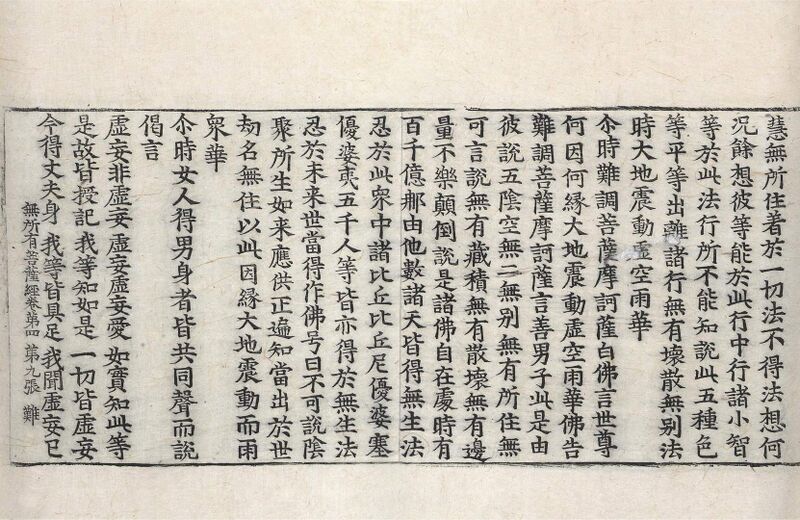 慧無所住著於一切法不得法想何
况餘想彼等能於此行中行諸小智
等於此法行所不能知說此五種色
等平等出離諸行無有壞散無別法
時大地震動虛空雨華
尒時難調菩薩摩訶薩白佛言世尊
何因何緣大地震動虛空雨華佛告
難調菩薩摩訶薩言善男子此是由
彼說五陰空無二無別無有所住無
可言說無有藏積無有散壞無有邊
量不樂顛倒說是諸佛自在處時有
百千億那由他數諸天皆得無生法
忍於此衆中諸比丘比丘尼優婆塞
優婆夷五千人等皆亦得於無生法
忍於未來世當得作佛号曰不可說陰
聚所生如来應供正遍知當出於世
劫名無住以此因緣大地震動而雨
衆華
尒時女人得男身者皆共同聲而說
偈言
虛妄非虛妄 虛妄虛妄愛 如實知此等
是故皆授記 我等知如是 一切皆虛妄
今得丈夫身 我等皆具足 我聞虛妄已
無所有菩薩經卷第四 第九張 難